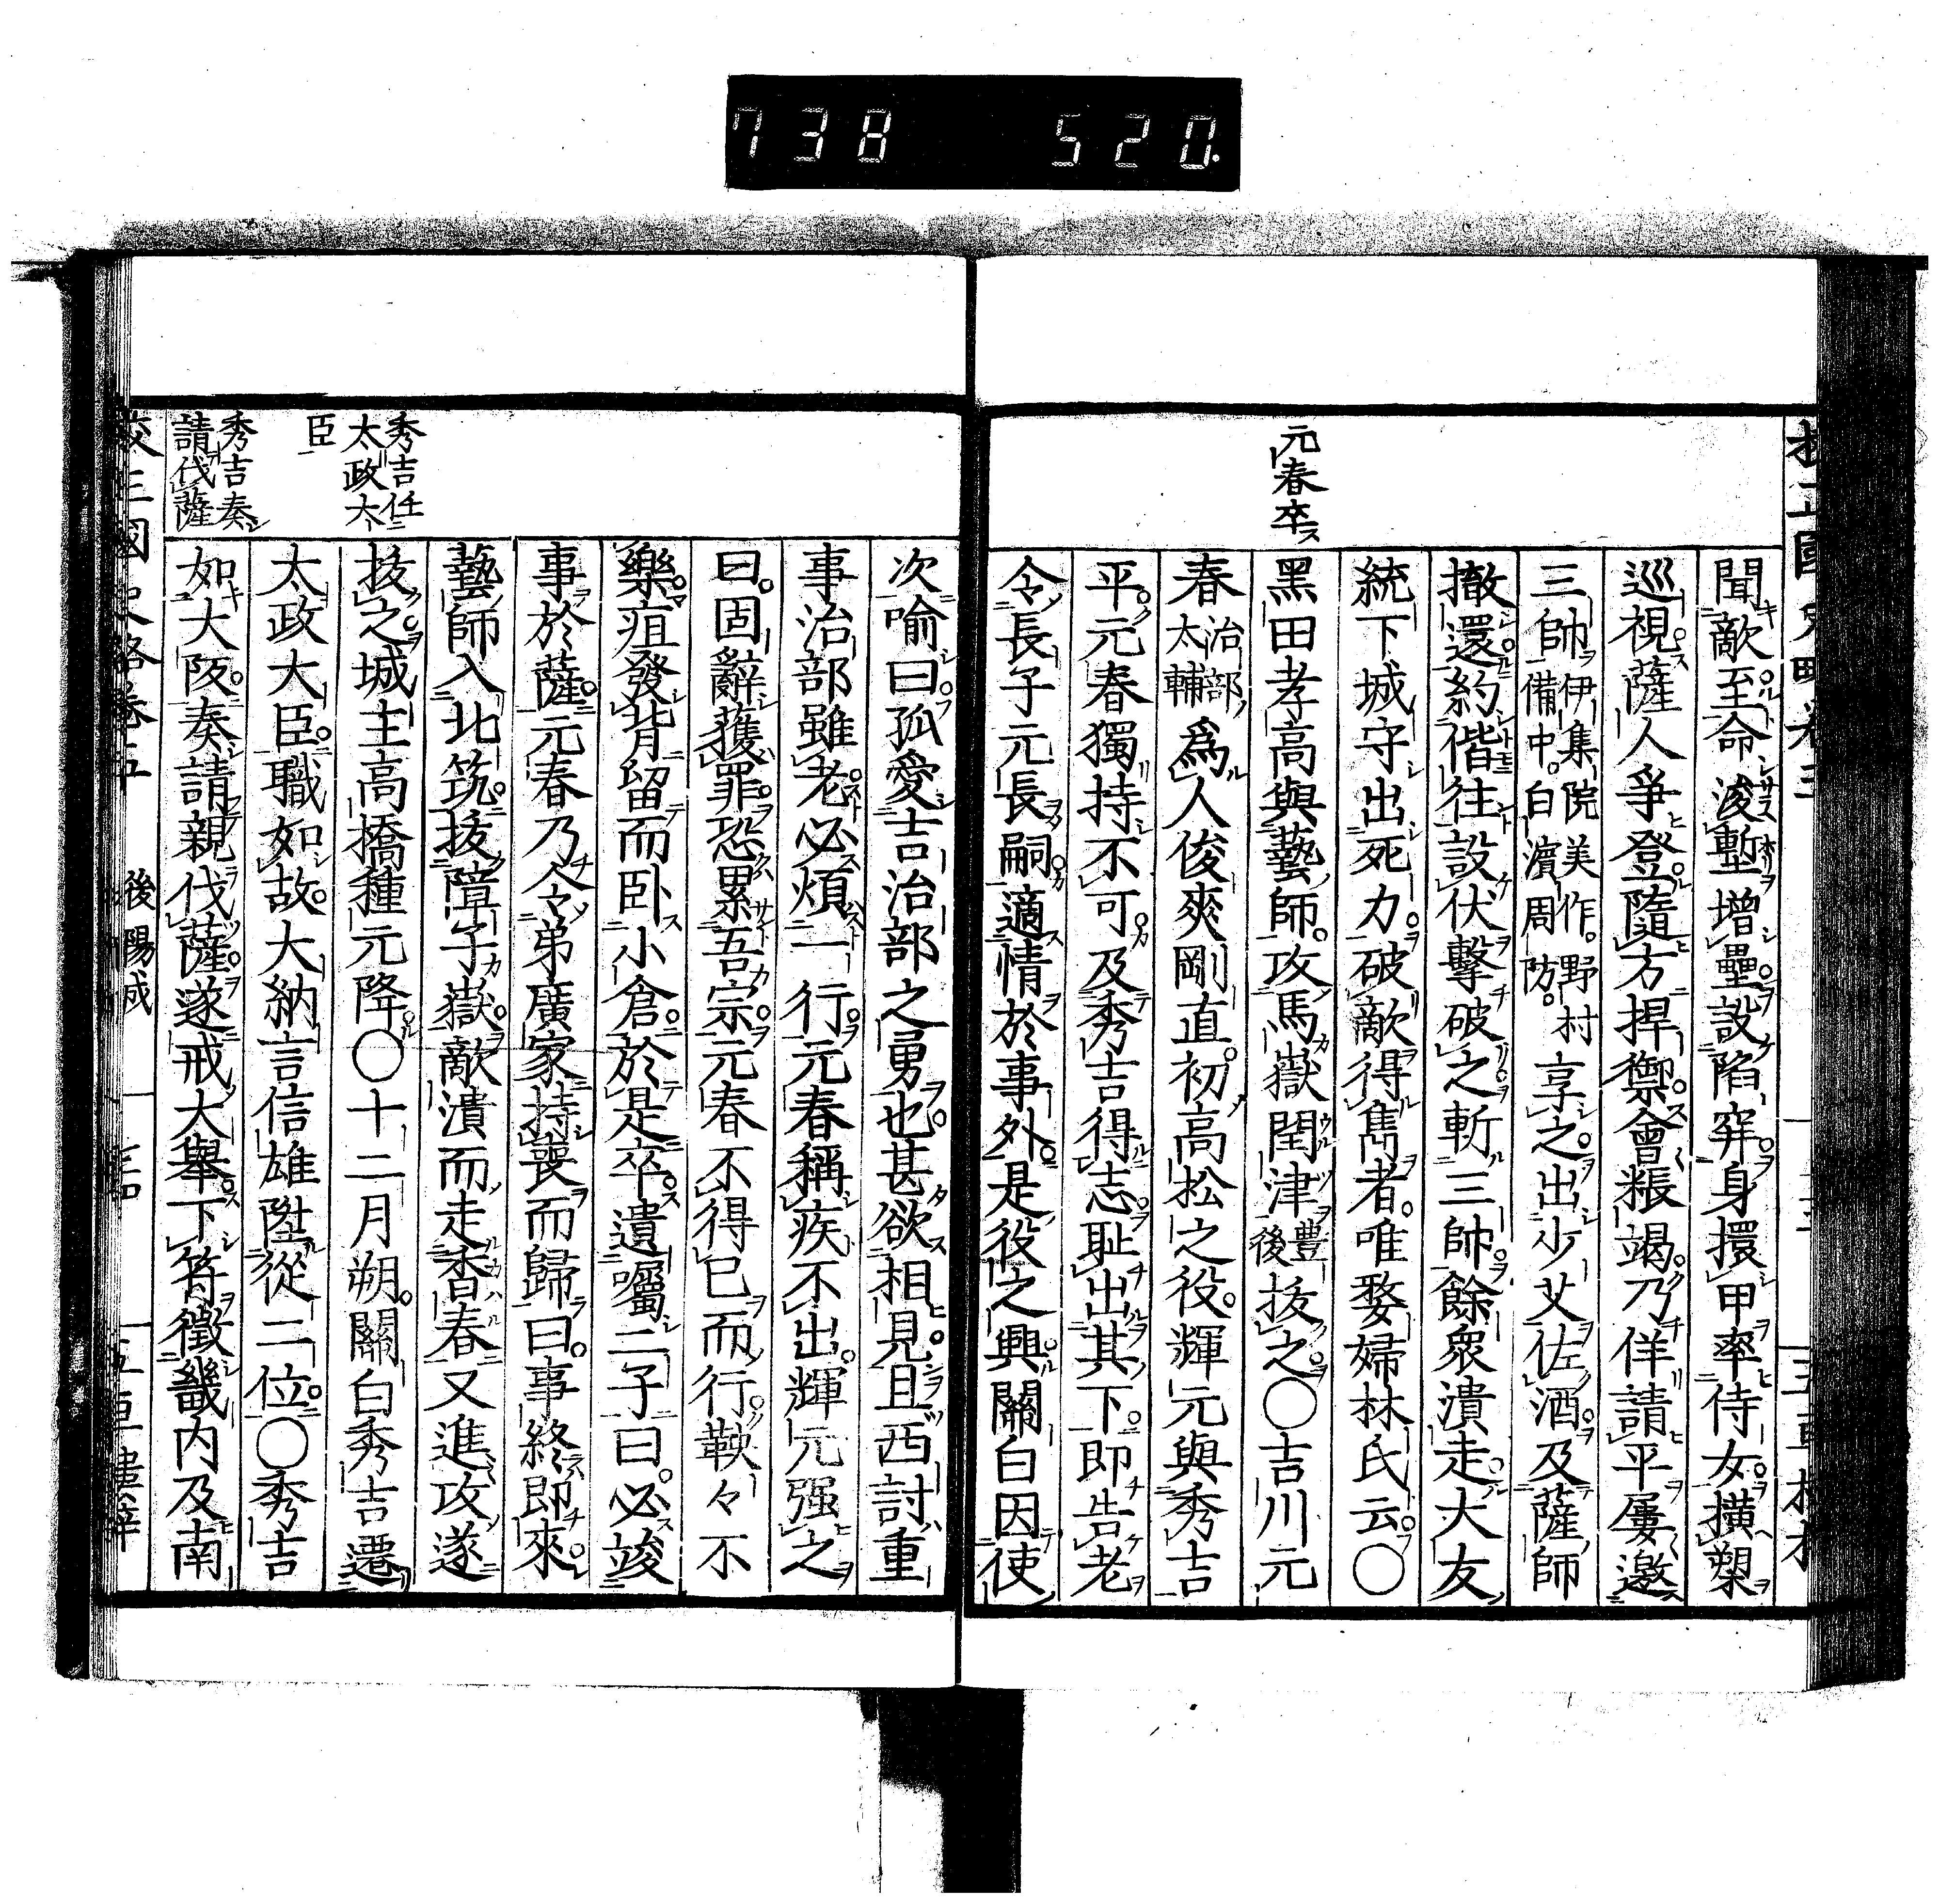 738 520.
聞敵至命浚塹增壘設陷穽身擐甲率侍女横槊
巡視薩人爭登隨方捍禦會粻竭乃佯請平屢邀
三帥伊集院美作。野村備中。白濱周防。享之出少艾佐酒及薩師
撤還約偕往設伏擊破之斬三帥餘衆潰走大友
統下城守出死力破敵得雋者。唯婺婦林氏云〇
元春卒ス
黑田孝高與藝師攻馬嶽閏津豊後拔之〇吉川元
春治部太輔爲人俊爽剛直。初高松之役。輝元與秀吉
平元春獨持不可及秀吉得志恥出其下即告老
令長子元長嗣適情於事外是役之興關白因使
次喻曰孤愛吉治部之勇也甚欲相見且西討重
事治部雖老必煩一行元春稱疾不出。輝元强之
曰。固辭獲罪恐累吾宗元春不得已而行鞅々不
樂疽發背留而卧小倉於是卒遺囑二子曰。必竣
事於薩元春乃令弟廣家持喪而歸曰。事終即來
藝師入北筑拔障子嶽敵潰而走香春又進攻遂
秀吉任
太政大
臣
拔之城主高橋種元降〇十二月朔。關白秀吉遷
太政大臣職如故大納言信雄陞從二位〇秀吉
秀吉奏
請伐薩
如大阪奏請親伐薩遂戒大舉下符徵畿内及南
後陽成